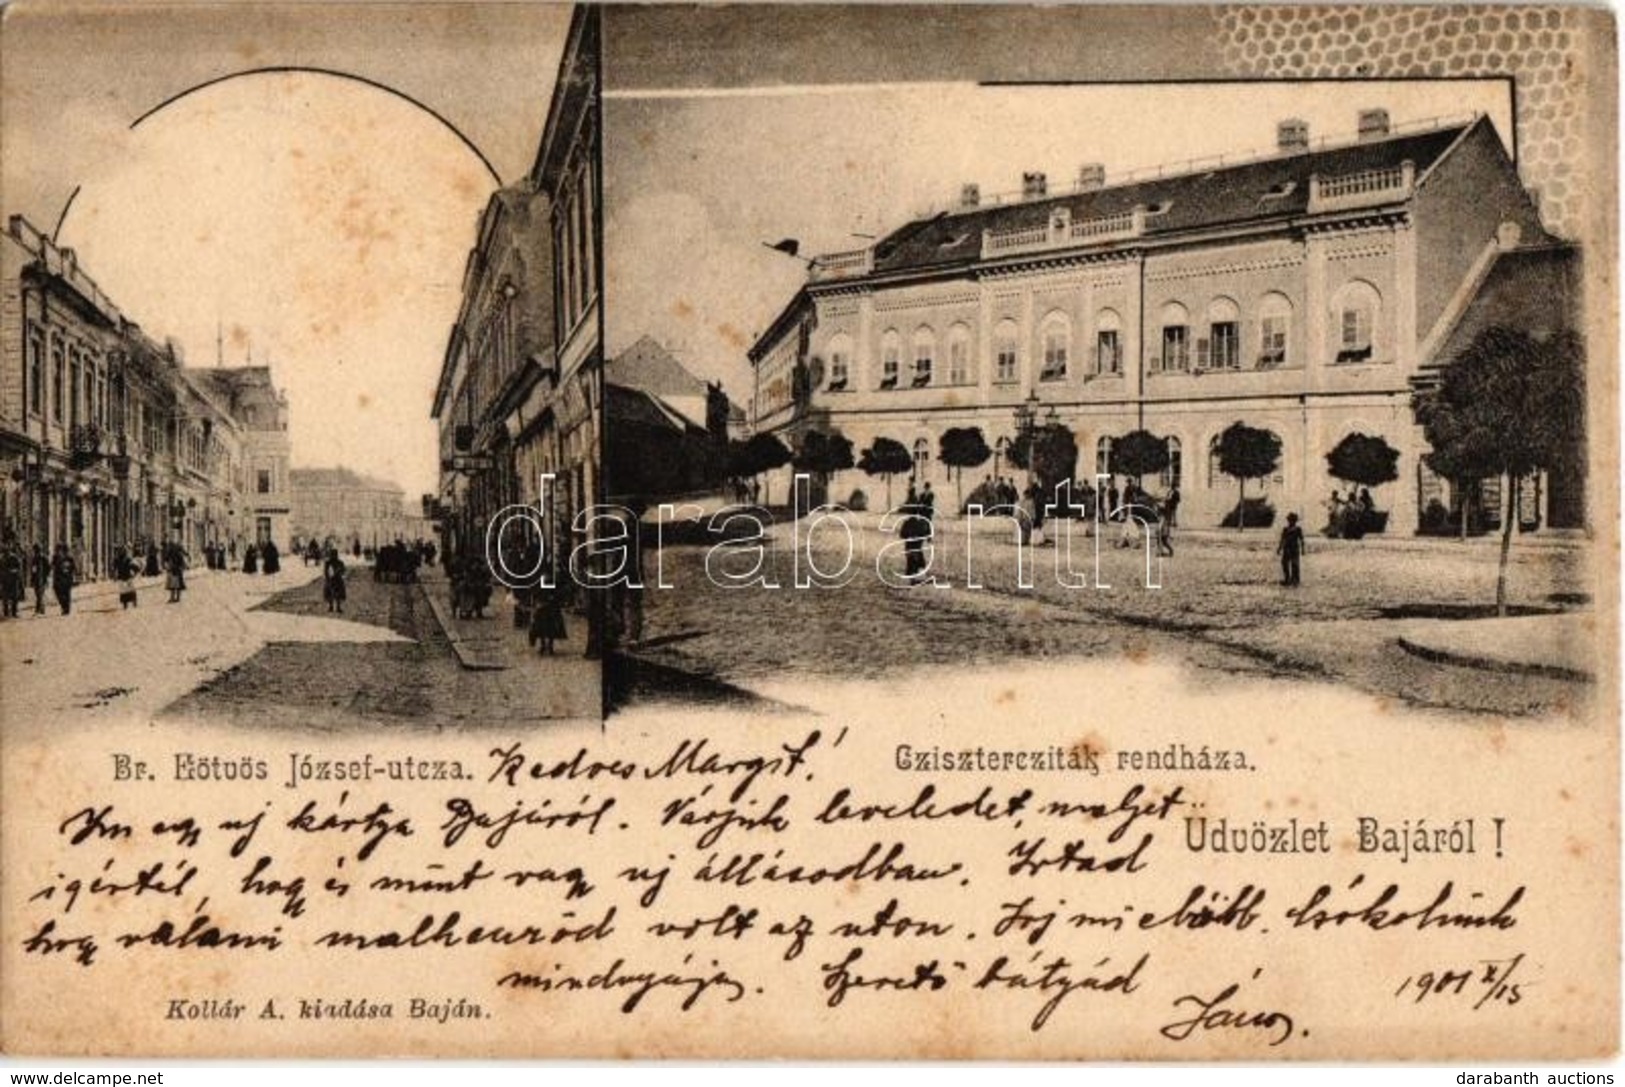 Br. Eötvös József-utcza.
Cziszterczíták rendháza.
Üdvözlet Bajáról !
Kedves Margit!
Im egy uj kártya Bajáról. Várjuk leveledet, melyet
igértél, hogy és mint vagy uj állásodban. Irtad
hogy valami malheuröd volt az uton. Irj mielőbb. Csókolunk
mindnyájan. Szerető bátyád
János.
1901 X/15
Kollár A. kiadása Baján.
darabanth
delcampe.net
darabanth auctions